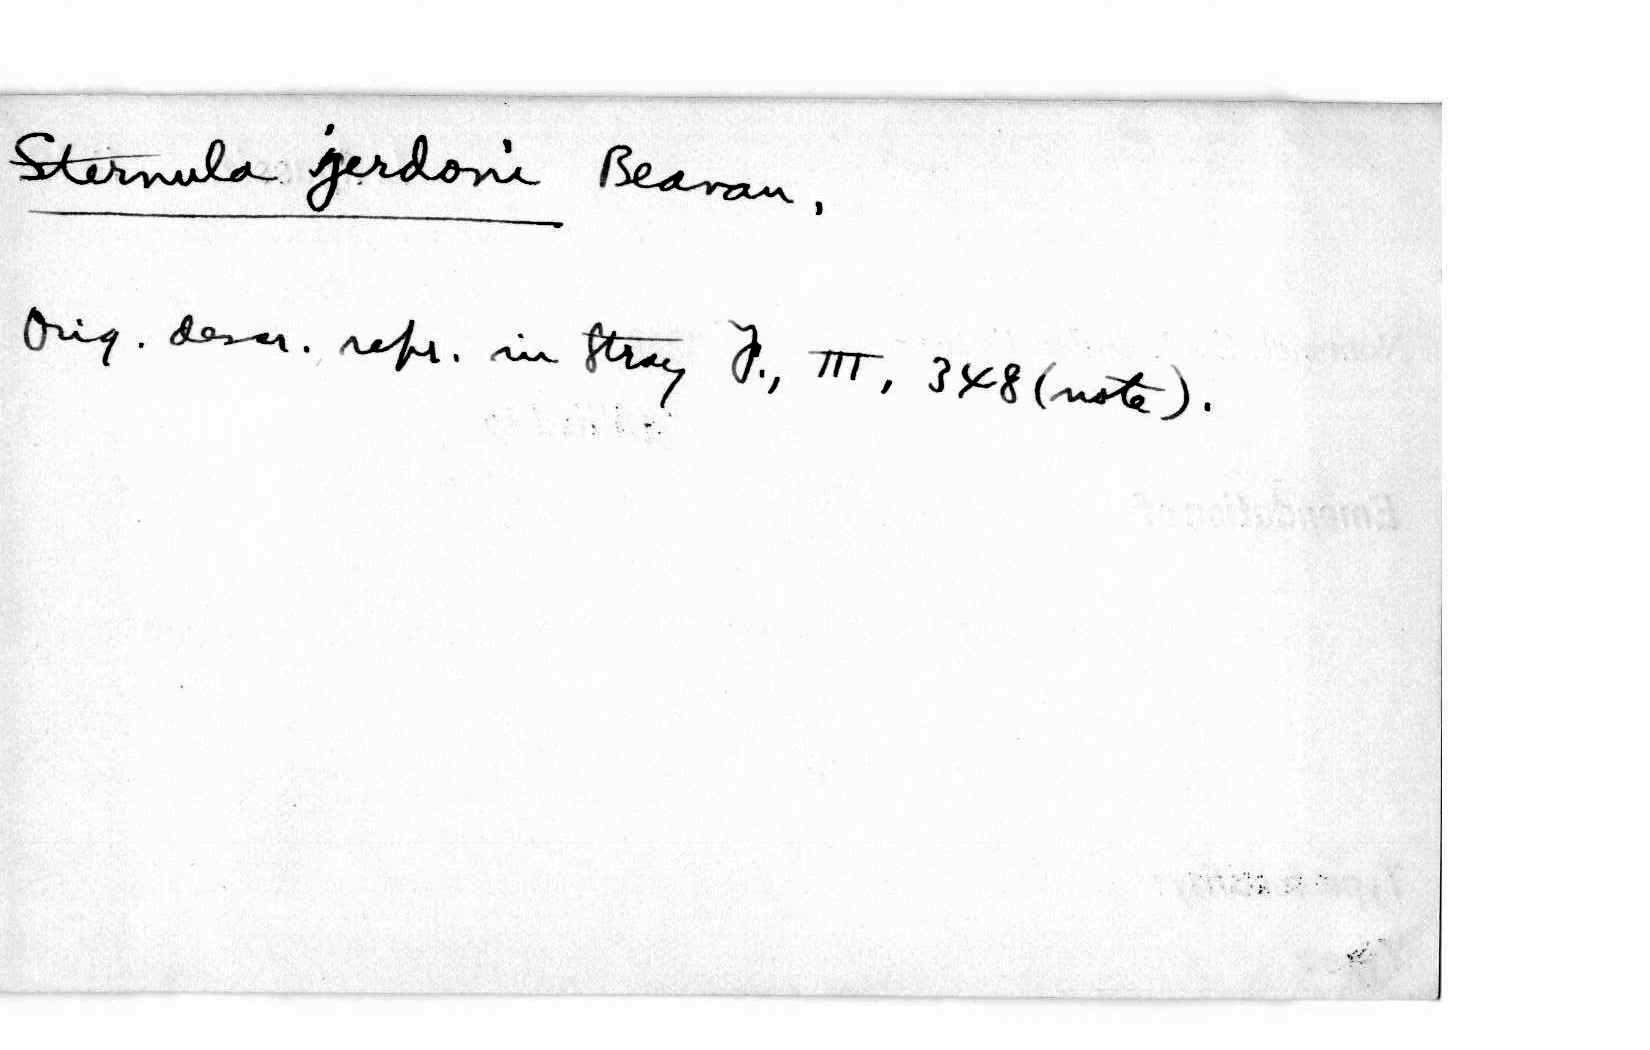 Sternula jerdoni Beavan,
Orig. descr. repr. in Stray F., III, 348 (note).
Emendation of